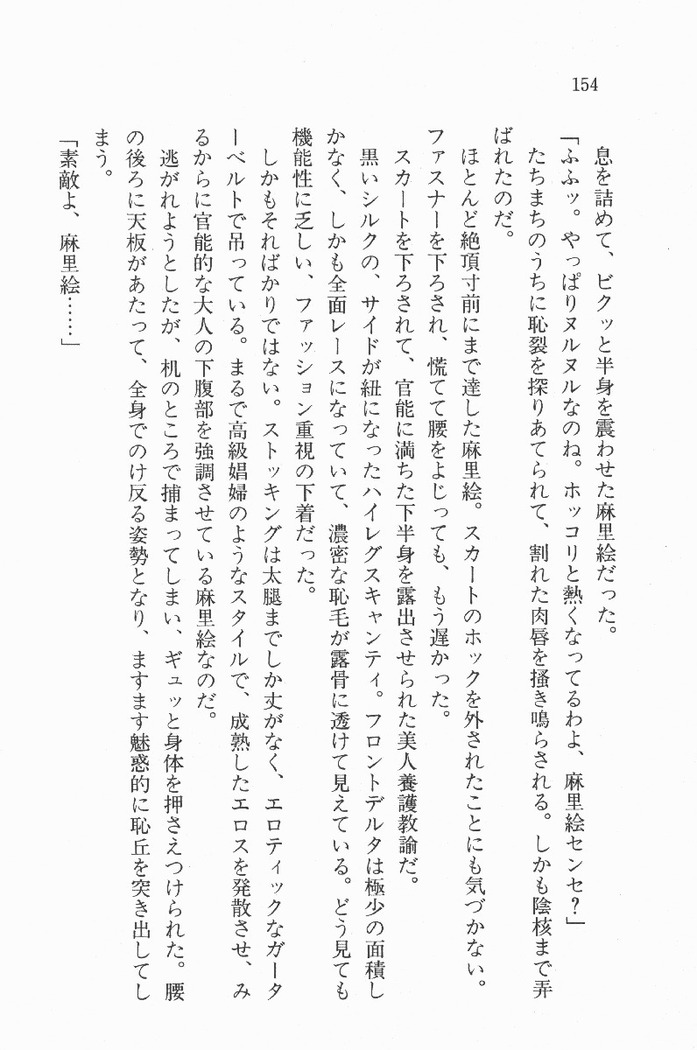 154
息を詰めて、ビクッと半身を震わせた麻里絵だった。
「ふふッ。やっぱりヌルヌルなのね。ホッコリと熱くなってるわよ、麻里絵センセ？」
たちまちのうちに恥裂を探りあてられて、割れた肉唇を掻き鳴らされる。しかも陰核まで弄
ばれたのだ。
ほとんど絶頂寸前にまで達した麻里絵。スカートのホックを外されたことにも気づかない。
ファスナーを下ろされ、慌てて腰をよじっても、もう遅かった。
スカートを下ろされて、官能に満ちた下半身を露出させられた美人養護教諭だ。
黒いシルクの、サイドが紐になったハイレグスキャンティ。フロントデルタは極少の面積し
かなく、しかも全面レースになっていて、濃密な恥毛が露骨に透けて見えている。どう見ても
機能性に乏しい、ファッション重視の下着だった。
しかもそればかりではない。ストッキングは太腿までしか丈がなく、エロティックなガータ
ーベルトで吊っている。まるで高級娼婦のようなスタイルで、成熟したエロスを発散させ、み
るからに官能的な大人の下腹部を強調させている麻里絵なのだ。
逃がれようとしたが、机のところで捕まってしまい、ギュッと身体を押さえつけられた。腰
の後ろに天板があたって、全身でのけ反る姿勢となり、ますます魅惑的に恥丘を突き出してし
まう。
「素敵よ、麻里絵……」